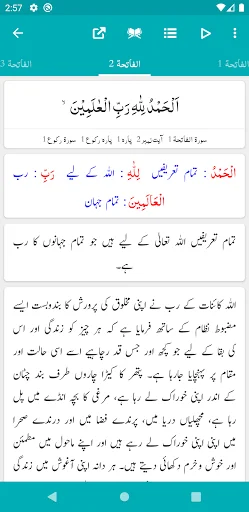 2:57
الفاتحة 1
الفاتحة 2
الفاتحة 3
اَلْحَمْدُ لِلّٰهِ رَبِّ الْعٰلَمِیْنَ
سورۃ الفاتحة 1 آیت نمبر 2 پارہ 1 پارہ رکوع 1 سورۃ رکوع 1
الْحَمْدُ : تمام تعریفیں لِلّٰهِ : اللہ کے لیے رَبِّ : رب
الْعَالَمِينَ : تمام جہان
تمام تعریفیں اللہ تعالی کے لیے ہیں جو تمام جہانوں کا رب
ہے۔
اللہ کائنات کے رب نے اپنی مخلوق کی پرورش کا بندوبست ایسے
مضبوط نظام کے ساتھ فرمایا ہے کہ ہر چیز کو زندگی اور اس
کی بقا کے لیے جو کچھ اور جس قدر رچاہیے اسے اسی حالت اور
مقام پر پہنچایا جارہا ہے۔ پتھر کا کیڑا چاروں طرف بند چٹان
کے اندر اپنی خوراک لے رہا ہے، مرغی کا بچہ انڈے میں پل
رہا ہے، مچھلیاں دریا میں، پرندے فضا میں اور درندے صحرا
میں اپنی اپنی خوراک لے رہے ہیں اور اپنے ماحول میں مطمئن
اور خوش وخرم دکھائی دیتے ہیں۔ ہر دانہ اپنی آغوش میں زندگی